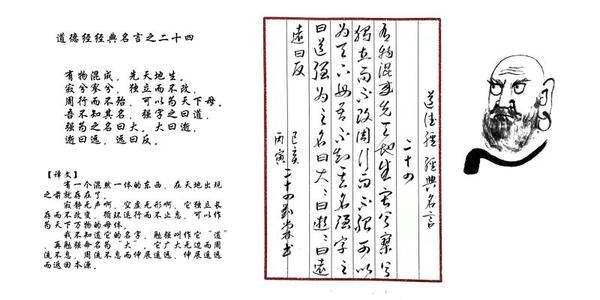 道德经经典名言之二十四
有物混成，先天地生，
寂兮寥兮，独立而不改，
周行而不殆，可以为天下母。
吾不知其名，强字之曰道，
强为之名曰大。大曰逝，
逝曰远，远曰反。
【译文】
有一个混然一体的东西，在天地出现
之前就存在了。
寂静无声啊，空虚无形啊，它独立长
存而不改变，循环运行而不止息，可以作
为天下万物的母体。
我不知道它的名字，勉强叫作它“道”
，再勉强命名为“大”。它广大无边而周
流不息，周流不息而伸展遥远，伸展遥远
而返回本源。
道德經經典名言
二十四
有物混成先天地生寂兮寥兮
独立而不改周行而不殆可以
为天下母吾不知其名强字之
曰道强为之名曰大大曰逝逝曰遠
遠曰反
己亥
丙寅二十四